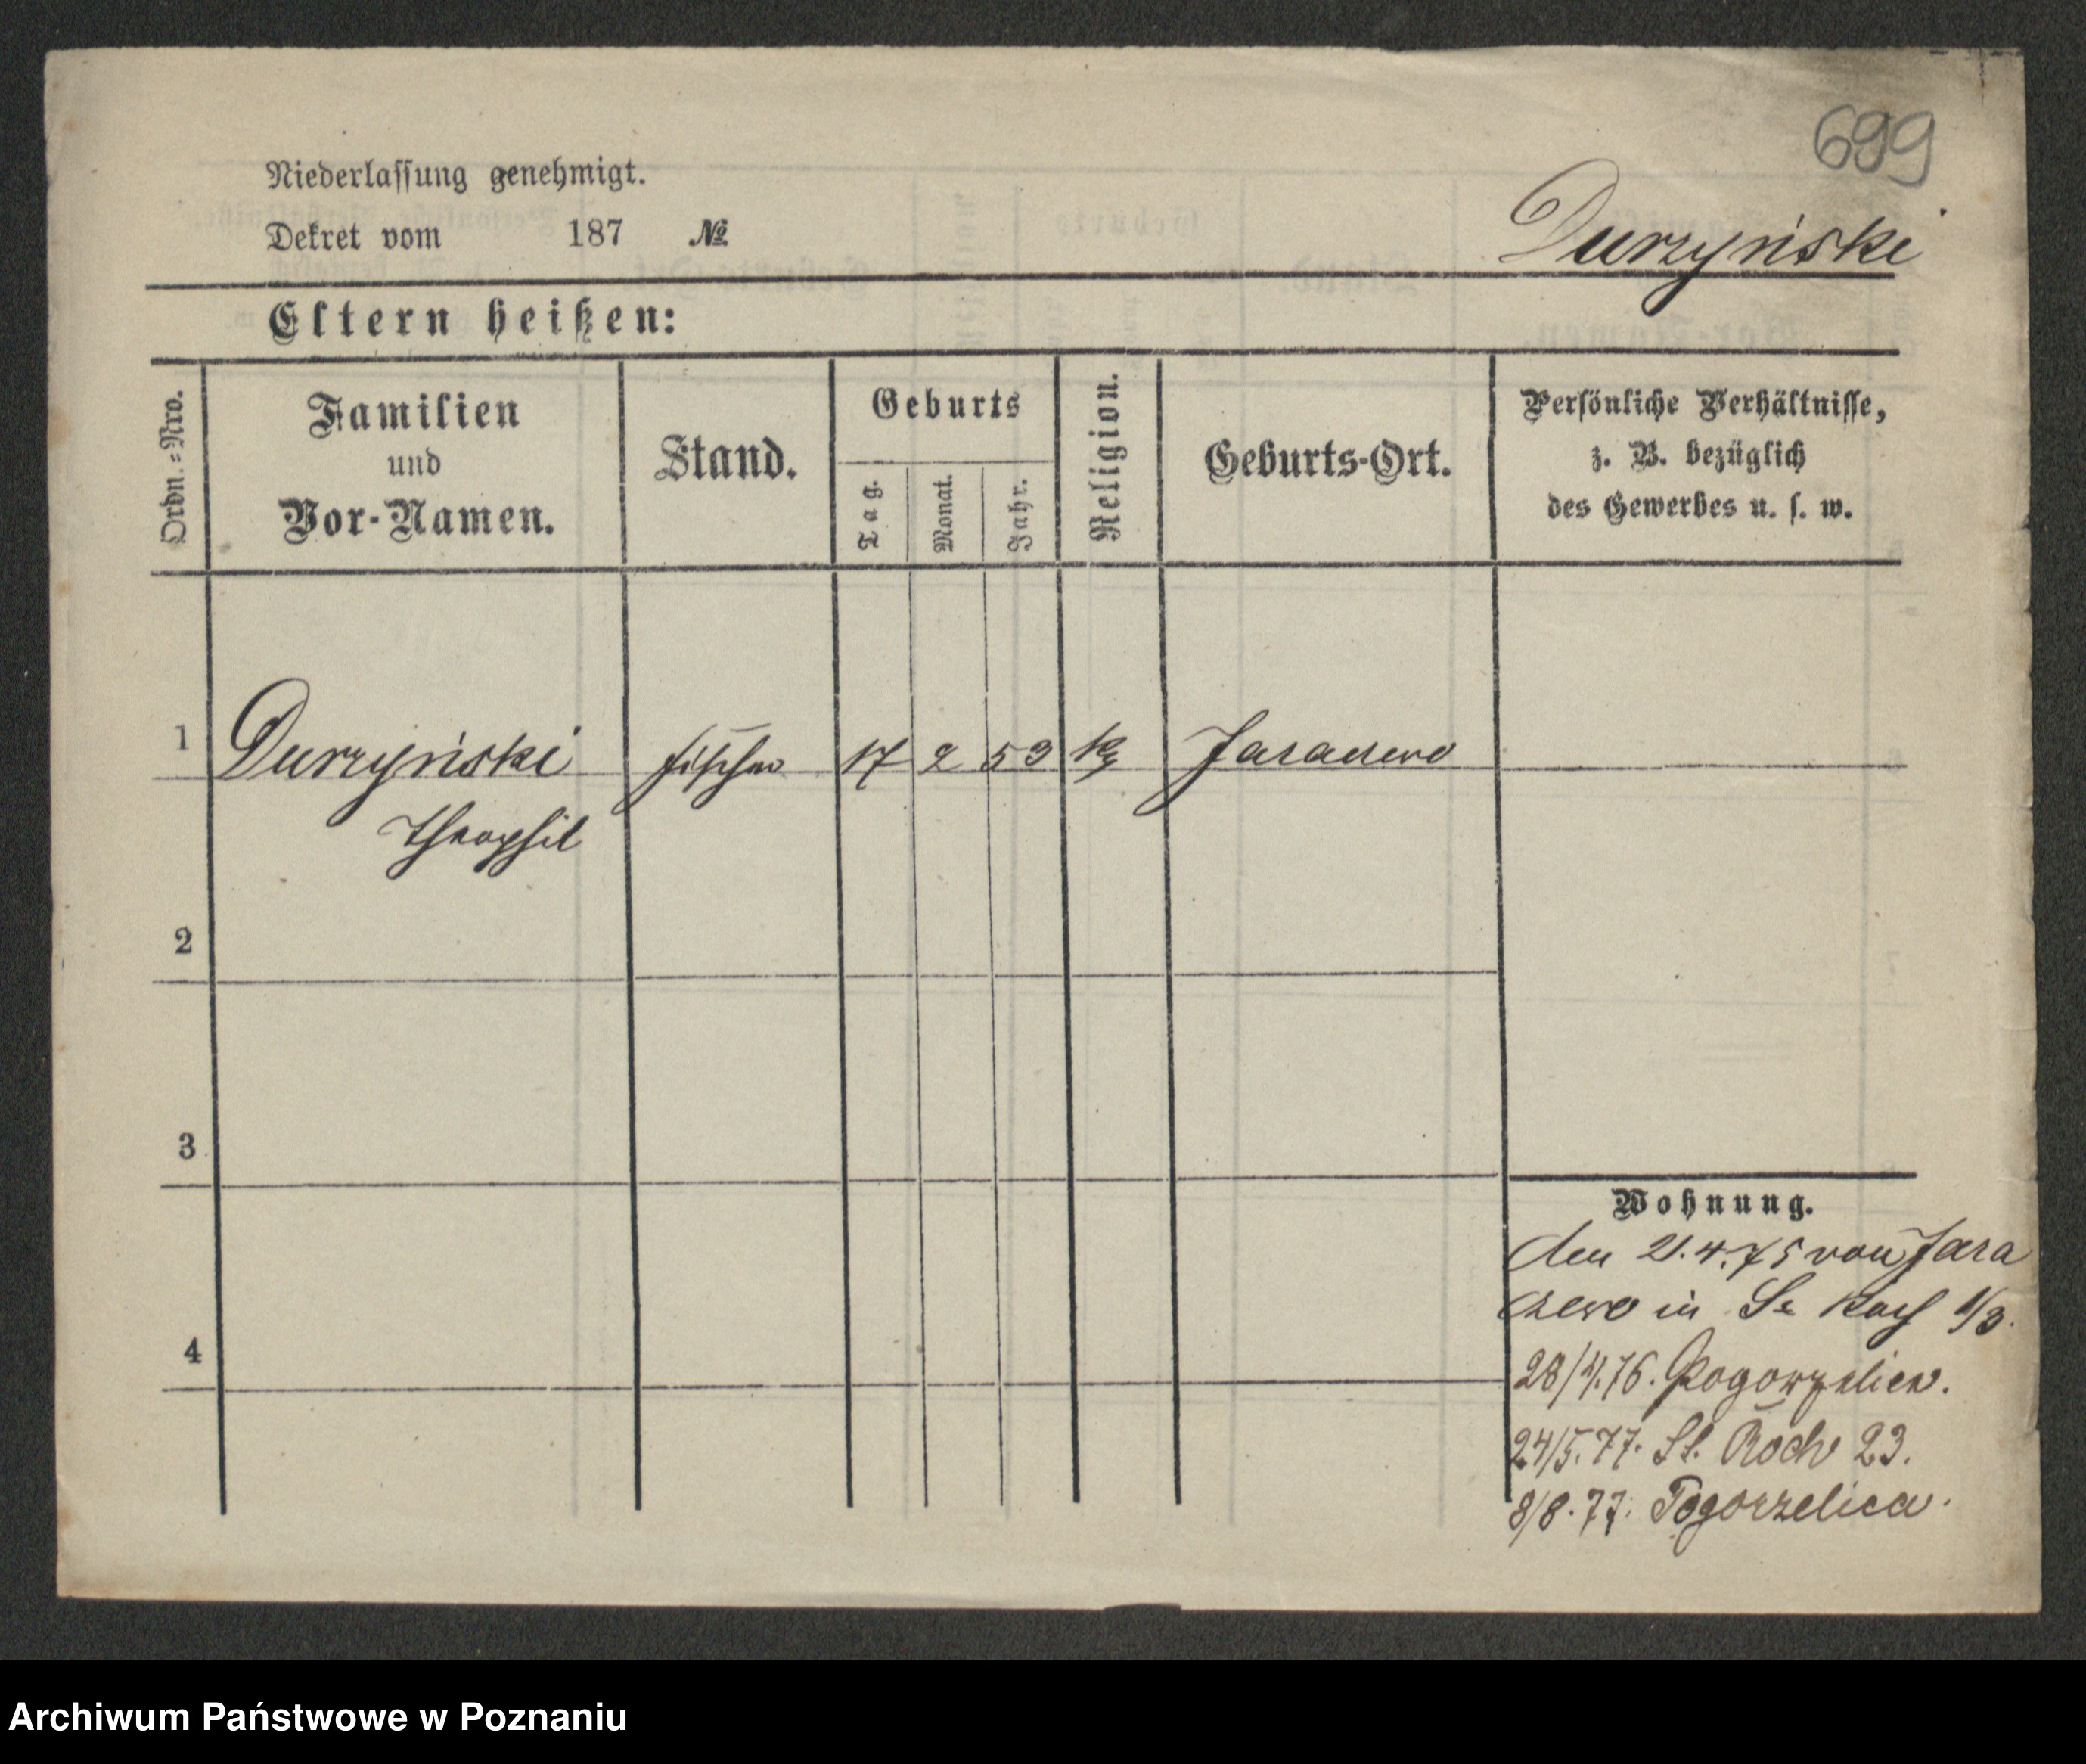 699
Niederlassung genehmigt.
Dekret vom 187 №
Durzyński
Eltern heißen:
Ordn.=Nro.
Familien
und
Vor-Namen.
Stand.
Geburts
Tag.
Monat.
Jahr.
Religion.
Geburts-Ort.
Persönliche Verhältnisse,
z. B. bezüglich
des Gewerbes u. s. w.
1 Durzyński Fischer 17 2 53
Theophil
2
3
4
Wohnung.
Den 21.4.75 von Jara
czewo in St Roch 1/3.
28/4.76. Pogorzelica.
24/5.77. St. Roch 23.
8/8.77. Pogorzelica.
Archiwum Państwowe w Poznaniu